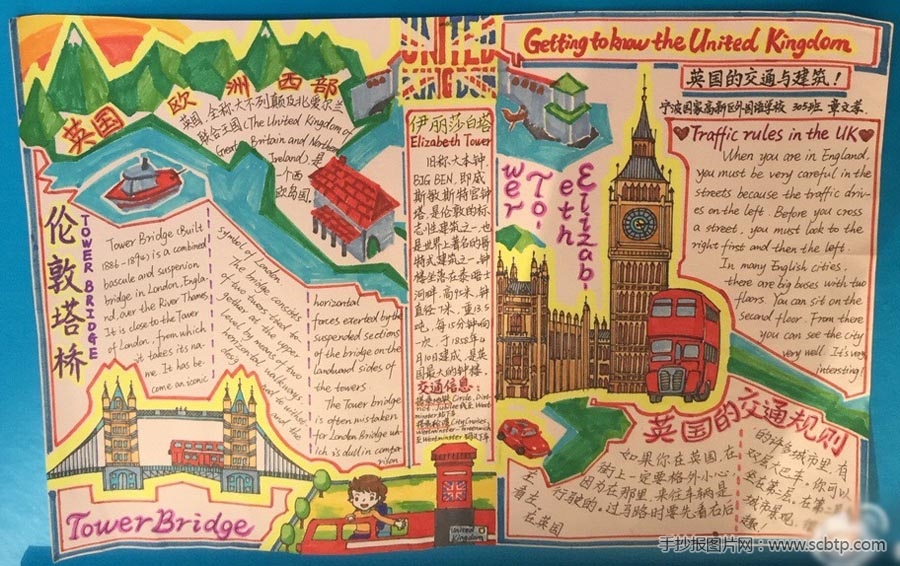 英国 欧洲西部
英国,全称大不列颠及北爱尔兰
联合王国(The United Kingdom of
Great Britain and Northern
Ireland),是
一个西
欧岛国.
伦敦塔桥
TOWER BRIDGE
Tower Bridge (Built
1886-1894) is a combined
bascule and suspension
bridge in London, Engla-
nd, over the River Thames,
It is close to the Tower
of London, from which
it takes its na-
me. It has be-
come an iconic
symbol of London.
The bridge consists
of two towers tied
together at the upper
level by means of two
horizontal walkways
horizontal
forces exerted by the
suspended sections
of the bridge on the
landward sides of
the towers.
The Tower bridge
is often mistaken
for London Bridge wh-
ich is dull in compa-
rison
Tower Bridge
UNITED
KINGDOM
伊丽莎白塔
Elizabeth Tower
旧称大本钟,
BIG BEN, 即威
斯敏斯特宫钟
塔,是伦敦的标
志性建筑之一,也
是世界上著名的哥
特式建筑之一,钟
楼坐落在泰晤士
河畔,高95米,钟
直径7米,重13.5
吨,每15分钟响
一次,于1858年4
月10日建成,是英
国最大的钟楼.
交通信息:
United
Kingdom
Elizab-
eth
To-
wer
Getting to know the United Kingdom
英国的交通与建筑!
宁波国家高新区外国语学校 305班 章文孝
Traffic rules in the UK
When you are in England,
you must be very careful in the
streets because the traffic driv-
es on the left. Before you cross
a street, you must look to the
right first and then the left.
In many English cities,
there are big buses with two
floors. You can sit on the
second floor. From there
you can see the city
very well. It's very
intersting!
英国的交通规则
如果你在英国,在
街上一定要格外小心,
因为在那里,来往车辆是
靠左行驶的.过马路时要先看右后
看左.
在英国
的许多城市里,有
双层大巴车.你可以
坐在第二层.在第二层
城市景观.很
趣!
手抄报图片网:www.scbtp.com